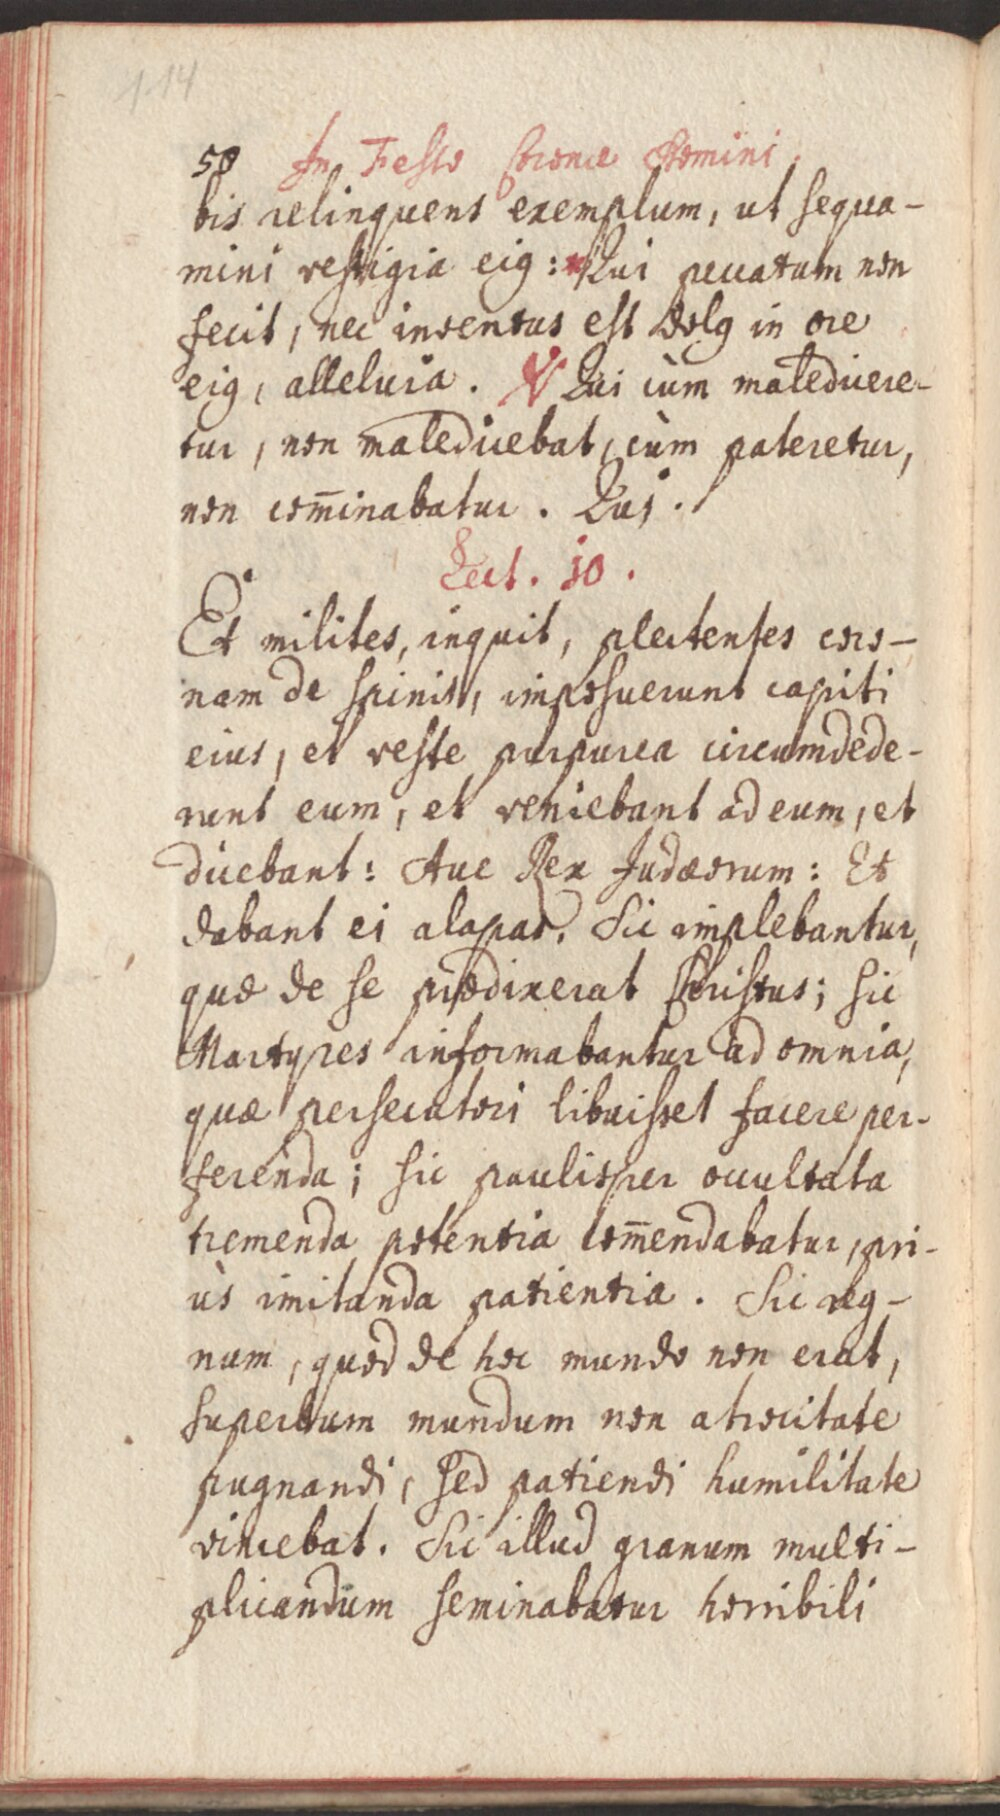 114
58 In Festo Coronæ Domini.
bis relinquens exemplum, ut sequa-
mini vestigia eiꝰ: * Qui peccatum non
fecit, nec inventus est dolꝰ in ore
eiꝰ, alleluia. ℣ Qui cùm maledicere-
tur, non maledicebat, cùm pateretur,
non com̄inabatur. Qui.
Lect. 10.
Et milites, inquit, plectentes coro-
nam de spinis, imposuerunt capiti
eius, et veste purpurea circumdede-
runt eum, et veniebant ad eum, et
dicebant: Ave Rex Judæorum: Et
dabant ei alapas. Sic implebantur,
quæ de se prædixerat Christus; sic
Martyres informabantur ad omnia,
quæ persecutori libuisset facere per-
ferenda; sic paulisper occultata
tremenda potentia com̄endabatur, pri-
ùs imitanda patientia. Sic reg-
num, quod de hoc mundo non erat,
superbum mundum non atrocitate
pugnandi, sed patiendi humilitate
vincebat. Sic illud granum multi-
plicandum seminabatur horribili